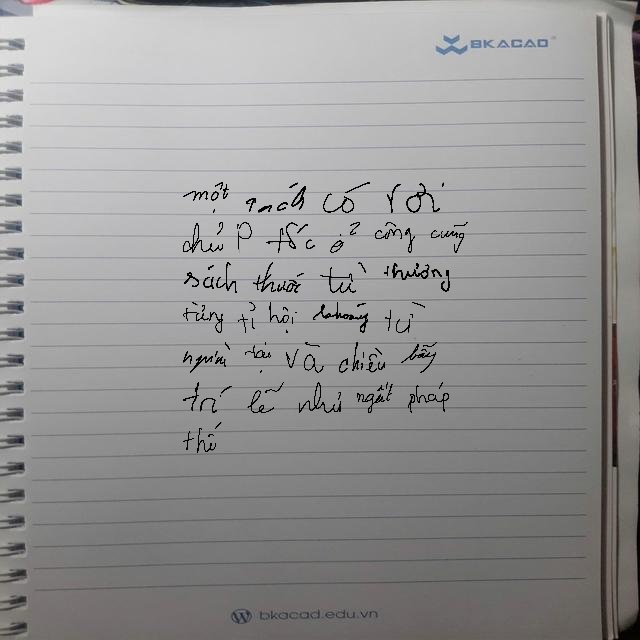 BKACAD
một mách có rơi
chử P tốc ở công cuỗg
sách thước từ thương
rừng tỉ hội khoảng từ
người tại và chiều bẫy
trí lẽ như ngất pháp
thố
bkacad.edu.vn